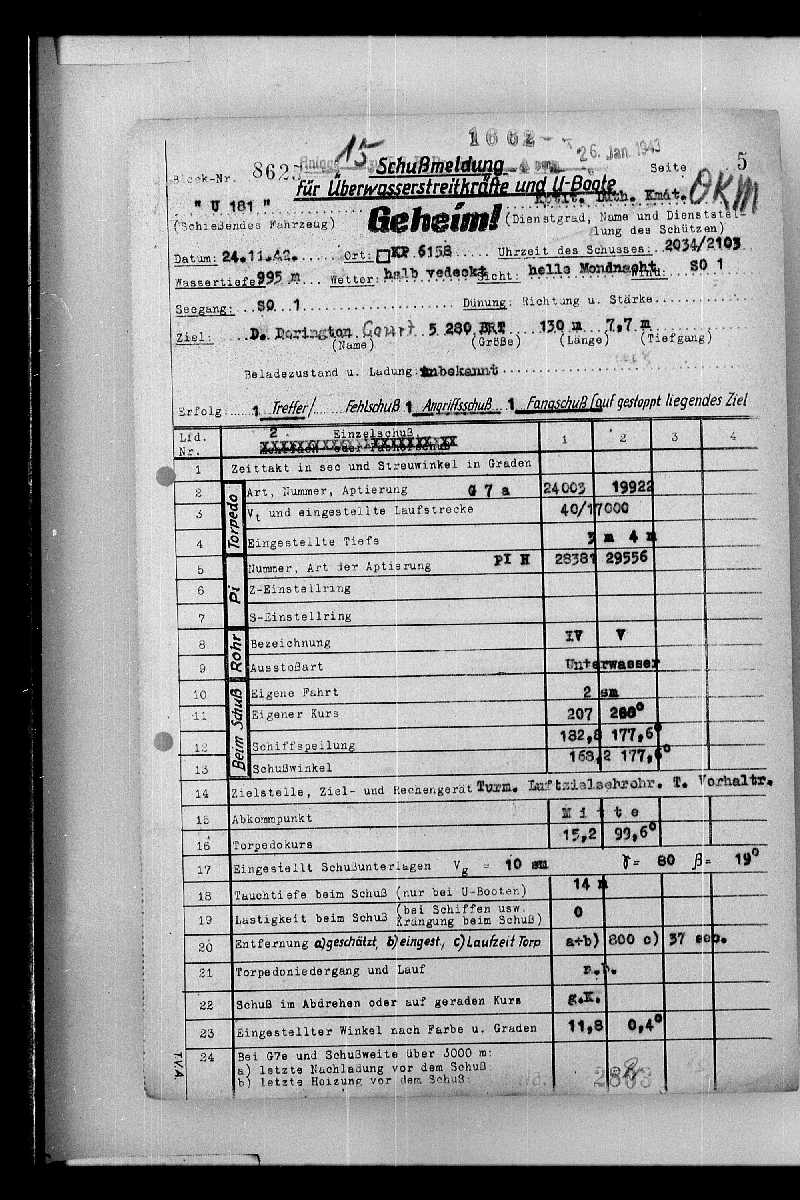 1662
26. Jan. 1943
Anlage 15
Block-Nr. 8627 Schußmeldung Seite 5
für Überwasserstreitkräfte und U-Boote
OKM
" U 181 " Kptlt. Lüth. Kmdt.
(Schießendes Fahrzeug) Geheim! (Dienstgrad, Name und Dienststel-
lung des Schützen)
Datum: 24.11.42. Ort: KP 6158 Uhrzeit des Schusses: 2034/2103
Wassertiefe 995 m Wetter: halb vedeckt Sicht: helle Mondnacht Wind: SO 1
Seegang: SO 1 Dünung: Richtung u. Stärke
Ziel: D. Dorington Court 5 280 BRT 130 m 7,7 m
(Name) (Größe) (Länge) (Tiefgang)
Beladezustand u. Ladung: Unbekannt
Erfolg: 1 Treffer/ Fehlschuß 1 Angriffsschuß 1 Fangschuß (auf gestoppt liegendes Ziel
Lfd. Nr. 2 Einzelschuß 1 2 3 4
1 Zeittakt in sec und Streuwinkel in Graden
Torpedo
2 Art, Nummer, Aptierung G 7 a 24003 19922
3 Vt und eingestellte Laufstrecke 40/17000
4 Eingestellte Tiefe 3 m 4 m
Pi
5 Nummer, Art der Aptierung PI H 28381 29556
6 Z-Einstellring
7 S-Einstellring
Rohr
8 Bezeichnung IV V
9 Ausstoßart Unterwasser
Beim Schuß
10 Eigene Fahrt 2 sm
11 Eigener Kurs 207 280°
12 Schiffspeilung 182,8 177,6°
13 Schußwinkel 168,2 177,6°
14 Zielstelle, Ziel- und Rechengerät Turm. Luftzielsehrohr. T. Vorhaltr.
15 Abkommpunkt M i t t e
16 Torpedokurs 15,2 99,6°
17 Eingestellt Schußunterlagen Vg = 10 sm γ= 80 β= 19°
18 Tauchtiefe beim Schuß (nur bei U-Booten) 14 m
19 Lastigkeit beim Schuß (bei Schiffen usw. Krängung beim Schuß) 0
20 Entfernung a) geschätzt, b) eingest., c) Laufzeit Torp a+b) 800 c) 37 sec.
21 Torpedoniedergang und Lauf n.b.
22 Schuß im Abdrehen oder auf geraden Kurs g.K.
23 Eingestellter Winkel nach Farbe u. Graden 11,8 0,4°
24 Bei G7e und Schußweite über 3000 m:
a) letzte Nachladung vor dem Schuß
b) letzte Heizung vor dem Schuß:
TVA
2803